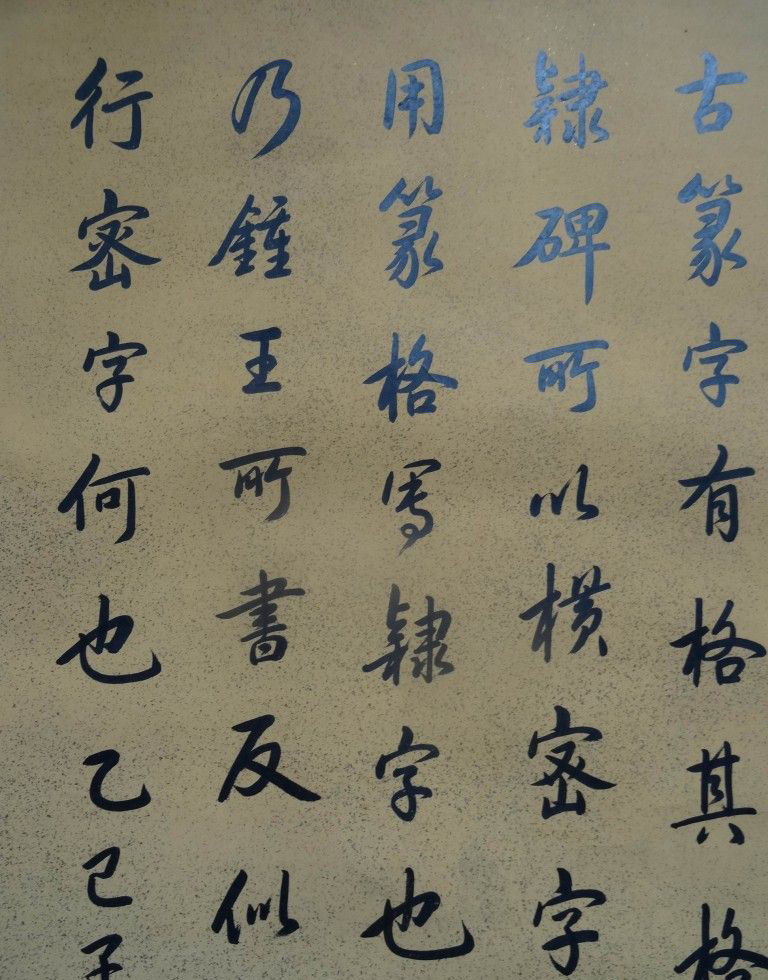 古篆字有格其格
隸碑所以橫密字
用篆格寫隸字也
乃鍾王所書反似
行密字何也乙巳